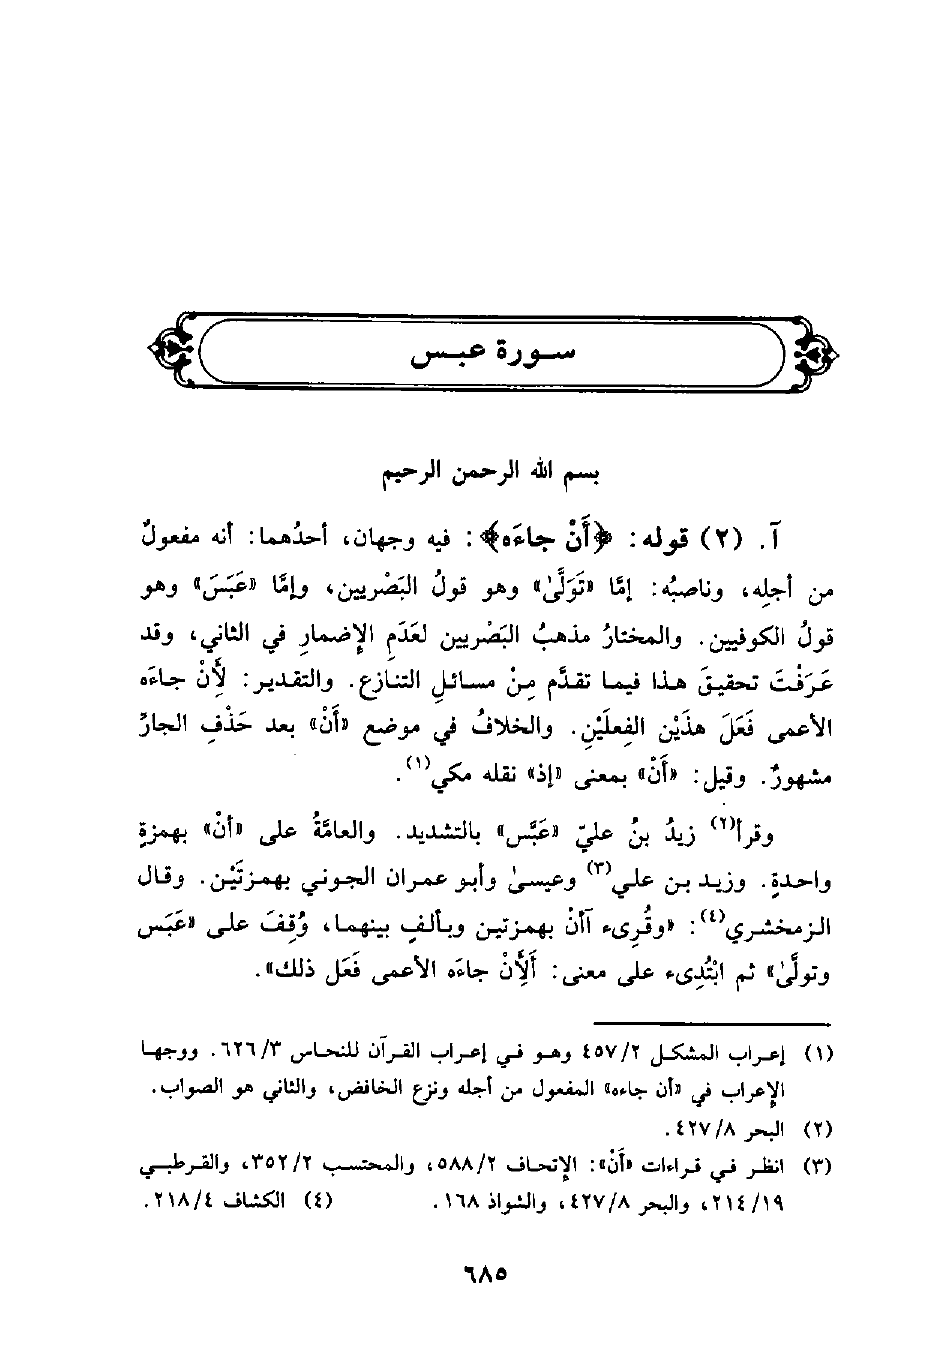 سورة عبس
بسم الله الرحمن الرحيم
آ. (٢) قوله: ﴿أَنْ جاءَه﴾: فيه وجهان، أحدُهما: أنه مفعولٌ
من أجلِه، وناصبُه: إمَّا «تَوَلَّىٰ» وهو قولُ البَصْريين، وإمَّا «عَبَسَ» وهو
قولُ الكوفيين. والمختارُ مذهبُ البَصْريين لعَدَمِ الإِضمارِ في الثاني، وقد
عَرَفْتَ تحقيقَ هذا فيما تقدَّم مِنْ مسائلِ التنازع. والتقدير: لأَِنْ جاءَه
الأعمى فَعَلَ هذَيْن الفِعلَيْنِ. والخلافُ في موضع «أَنْ» بعد حَذْفِ الجارِّ
مشهورٌ. وقيل: «أَنْ» بمعنى «إذ» نقله مكي(١).
وقرأ(٢) زيدُ بنُ عليّ «عَبَّس» بالتشديد. والعامَّةُ على «أنْ» بهمزةٍ
واحدةٍ. وزيد بن علي(٣) وعيسىٰ وأبو عمران الجوني بهمزتَيْن. وقال
الزمخشري(٤): «وقُرِىء آأنْ بهمزتين وبألفٍ بينهما، وُقِفَ على «عَبَس
وتولَّىٰ» ثم ابْتُدِىء على معنى: أَلِأَنْ جاءَه الأعمى فَعَل ذلك».
(١) إعراب المشكل ٤٥٧/٢ وهو في إعراب القرآن للنحاس ٦٢٦/٣. ووجها
الإِعراب في «أن جاءه» المفعول من أجله ونزع الخافض، والثاني هو الصواب.
(٢) البحر ٤٢٧/٨.
(٣) انظر في قراءات «أَنْ»: الإتحاف ٥٨٨/٢، والمحتسب ٣٥٢/٢، والقرطبي
٢١٤/١٩، والبحر ٤٢٧/٨، والشواذ ١٦٨. (٤) الكشاف ٢١٨/٤.
٦٨٥